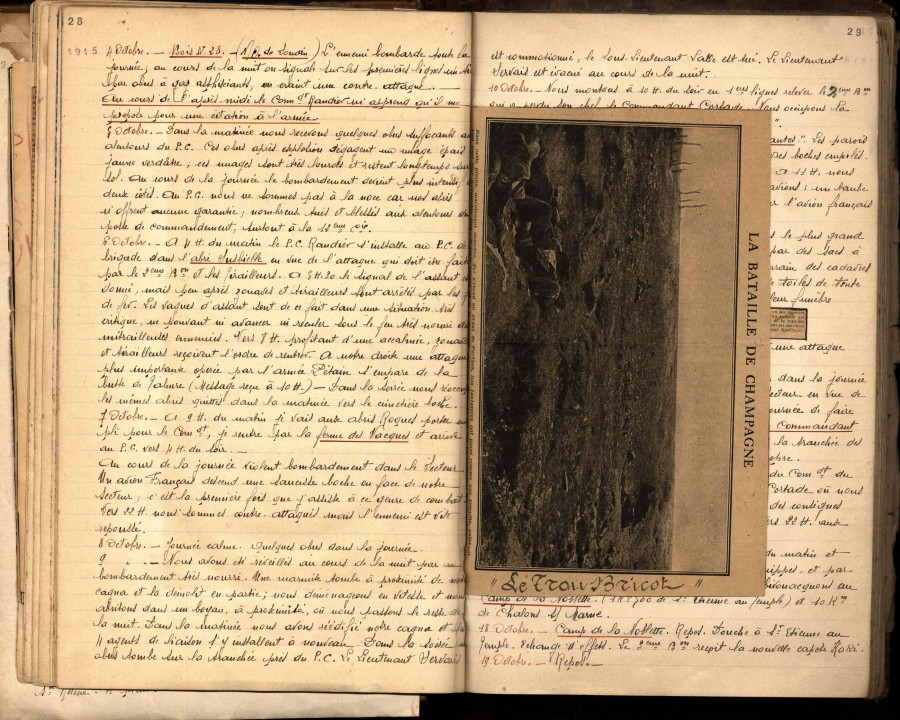 28
1915
4 Octobre. — Bois N. 28. — (N.O. de Souain) L'ennemi bombarde toute la
journée; au cours de la nuit on signale sur les premières lignes un
par obus à gaz asphyxiants, on craint une contre attaque.
Au cours de l'après-midi le Comt Randier m'apprend qu'il me
propose pour une citation à l'armée.
5 Octobre. — Dans la matinée nous recevons quelques obus suffocants au
alentours du P.C. Ces obus après explosion dégagent un nuage épais
jaune verdâtre; ces nuages sont très lourds et restent longtemps sur
sol. Au cours de la journée le bombardement devient plus intense
deux côtés. Au P.C. nous ne sommes pas à la noce car nos abris
n'offrent aucune garantie; nombreux tués et blessés aux alentours du
poste de commandement, surtout à la 12ème Cie.
6 Octobre. — A 4 H. du matin le P.C. Randier s'installe au P.C. de
brigade dans l'abri en vue de l'attaque qui doit être faite
par le 2ème Bon et les tirailleurs. A 5 H. 20 le signal de l'assaut est
donné, mais peu après zouaves et tirailleurs sont arrêtés par les fils
de fer. Les vagues d'assaut sont de ce fait dans une situation très
critique, ne pouvant ni avancer ni reculer sous le feu très nourri des
mitrailleuses ennemies. Vers 7 H. profitant d'une accalmie, zouaves
et tirailleurs reçoivent l'ordre de rentrer. A notre droite une attaque
plus importante opérée par l'armée Pétain s'empare de la
butte de Tahure (Message reçu à 10 H.) — Dans la soirée nous réoccupons
les mêmes abris quittés dans la matinée vers le cimetière boche.
7 Octobre. — A 9 H. du matin je vais aux abris Roques porter un
pli pour le Comdt, je rentre par la ferme des Wacques et arrive
au P.C. vers 4 H. du soir. —
Au cours de la journée violent bombardement dans le secteur.
Un avion Français descend une saucisse boche en face de notre
secteur; c'est la première fois que j'assiste à ce genre de combat.
Vers 22 H. nous sommes contre-attaqués mais l'ennemi est vite
repoussé.
8 Octobre. — Journée calme. Quelques obus dans la journée.
9 „ — Nous avons été réveillés au cours de la nuit par un
bombardement très nourri. Une marmite tombe à proximité de notre
cagna et la démolit en partie; nous déménageons en vitesse et nous
abritons dans un boyau, à proximité, où nous passons le reste de
la nuit. Dans la matinée nous avons réédifié notre cagna et
agents de liaison s'y installent à nouveau. Dans la soirée un
obus tombe sur la tranchée près du P.C. Le Lieutenant Servais
29
est commotionné, le Sous-Lieutenant est tué. Le Lieutenant
Servais est évacué au cours de la nuit.
10 Octobre. — Nous montons à 10 H. du soir en 1ères lignes relever le 2ème Bon
qui a perdu son chef le Commandant Cortade. Nous occupons la
antes". Les parois
boches empilés.
A 11 H. nous
avions; un taube
l'avion français
le plus grand
par des sacs à
terrain des cadavres
toiles de tente
leur funèbre
une attaque
dans la journée
secteur en vue de
journée de faire
Commandant
la tranchée des
du Comdt du
Cortade où nous
des contiguës
vers 22 H. aux
du matin et
et par
bivouacquons au
LA BATAILLE DE CHAMPAGNE
"Le Trou Bricot"
Camp de la Noblette. (1 K. 700 de St Etienne au Temple) et 10 Km
de Chalons s/ Marne.
18 Octobre. — Camp de la Noblette. Repos. Douche à St Etienne au
Temple. Echange d'effets. Le 3ème Bon reçoit la nouvelle capote Kaki.
19 Octobre. — Repos. —